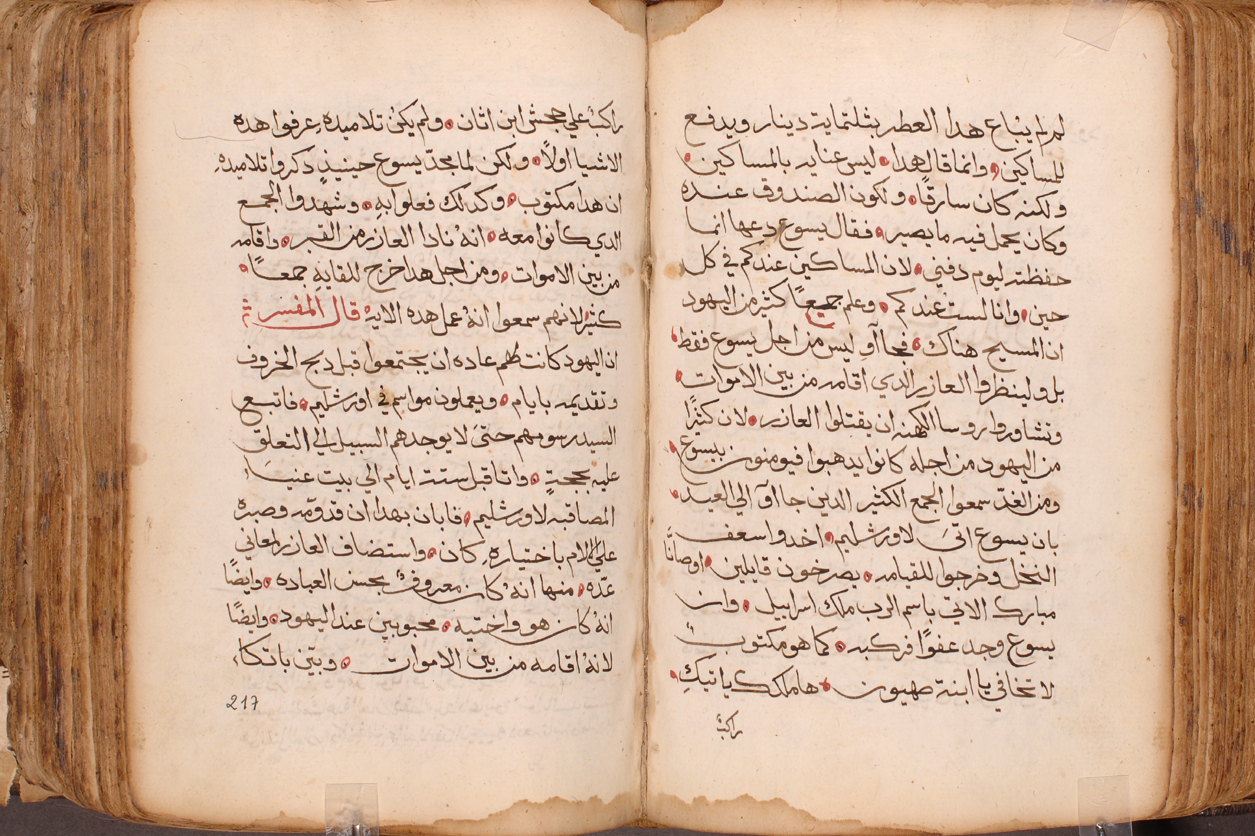 لم لم يباع هدا العطر بثلتماية دينار ويدفع
للمساكين وانما قال هدا ليس عنايه بالمساكين
ولكنه كان سارقًا ولكون الصندوق عنده
وكان يحمل فيه ما يصير فقال يسوع دعها انما
حفظته ليوم دفني لان المساكين عندكم في كل
حين وانا لست عندكم وعلم جميعًا كثير من اليهود
ان المسيح هناك فجاآو ليس من اجل يسوع فقط
بل ولينظروا العازر الدي اقامه من بين الاموات
وتشاوروا روسا الكهنه ان يقتلوا العازر لان كثيرًا
من اليهود من اجله كانوا يدهبوا فيومنون بيسوع
ومن الغد سمعوا الجمع الكثير الدين جااو الى العيد
بان يسوع اتىَ لاورشليم اخدوا سعف
النخل وخرجوا للقيامه يصرخون قايلين اوصانَّا
مبارك الاتي باسم الرب ملك اسراييل وان
يسوع وجد عفوًا فركبه كما هو مكتوب
لا تخافي يا ابنة صهيون ها ملكك ياتيكِ
راكبً
راكبً علي جحش ابن اتان ولم يكن تلاميده عرفوا هده
الاشيا اولًا ولكن لما مجد يسوع حينيدٍ دكروا تلاميده
ان هدا مكتوب وكدلك فعلوا بهِ وشهدوا الجمع
الدي كانوا معه انهُ نادا العازر من القبر واقامه
من بين الاموات ومن اجل هدا خرج للقايهِ جمعًا
كثيرً لانهم سمعوا انهُ عمل هده الايه قال المفسر
ان اليهود كانت لهم عاده ان يجتمعوا قبل دبح الخروف
وتقديمه بايام ويعملون مواسم في اورشليم فاتبع
السيد رسومهم حتىٰ لا يوجدهم السبيل الي التعلق
عليه بحجةٍ واتا قبل ستة ايام الي بيت عنيا
المصاقبه لاورشليم فابان بهدا ان قدومه وصبره
علي الالام باختياره كان واستضاف العازر لمعاني
عدّه منها انهُ كان معروفً بحسن العباده وايضًا
انهُ كان هو واختيه محبوبين عند اليهود وايضًا
لانهُ اقامه من بين الاموات وبيّن باتكاء
217